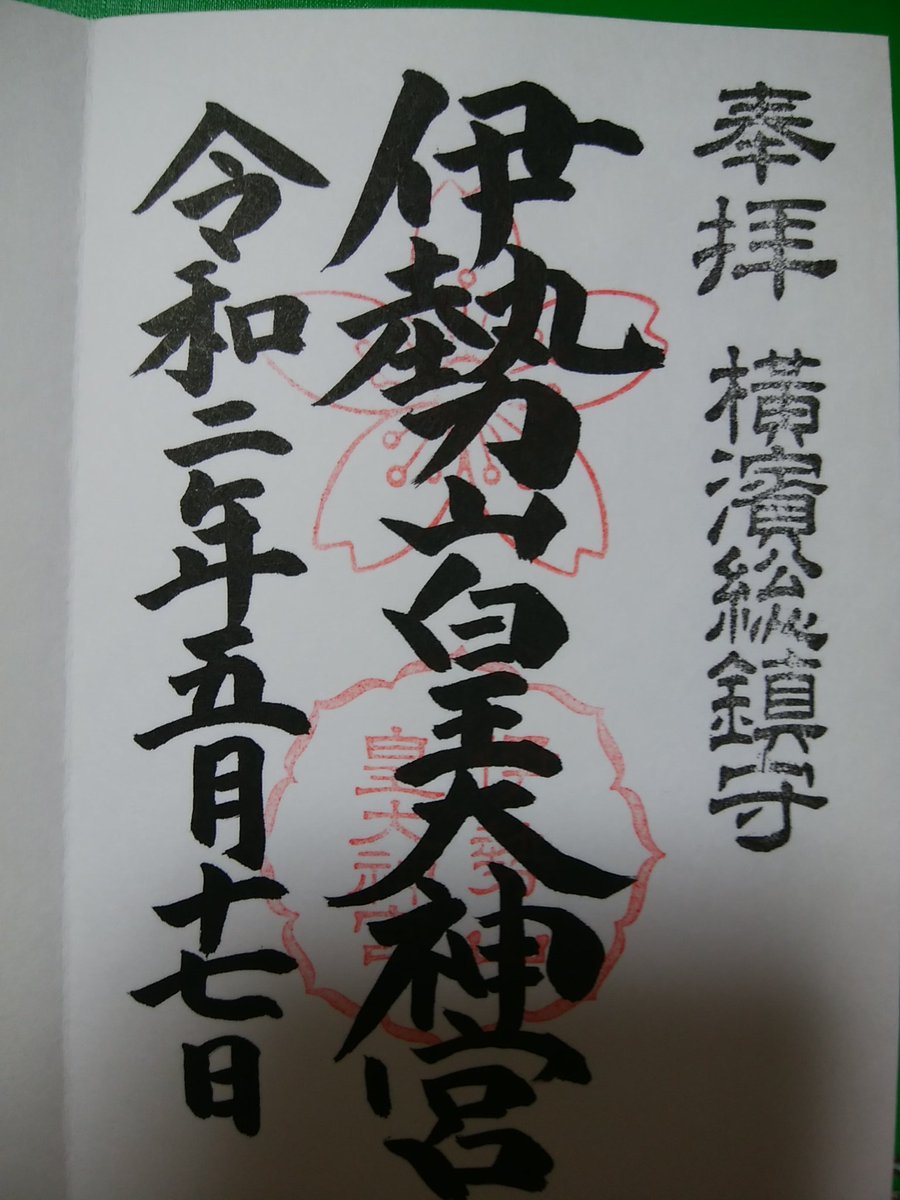 奉拝 横濱総鎮守
伊勢山皇大神宮
令和二年五月十七日
伊勢山
皇大神宮